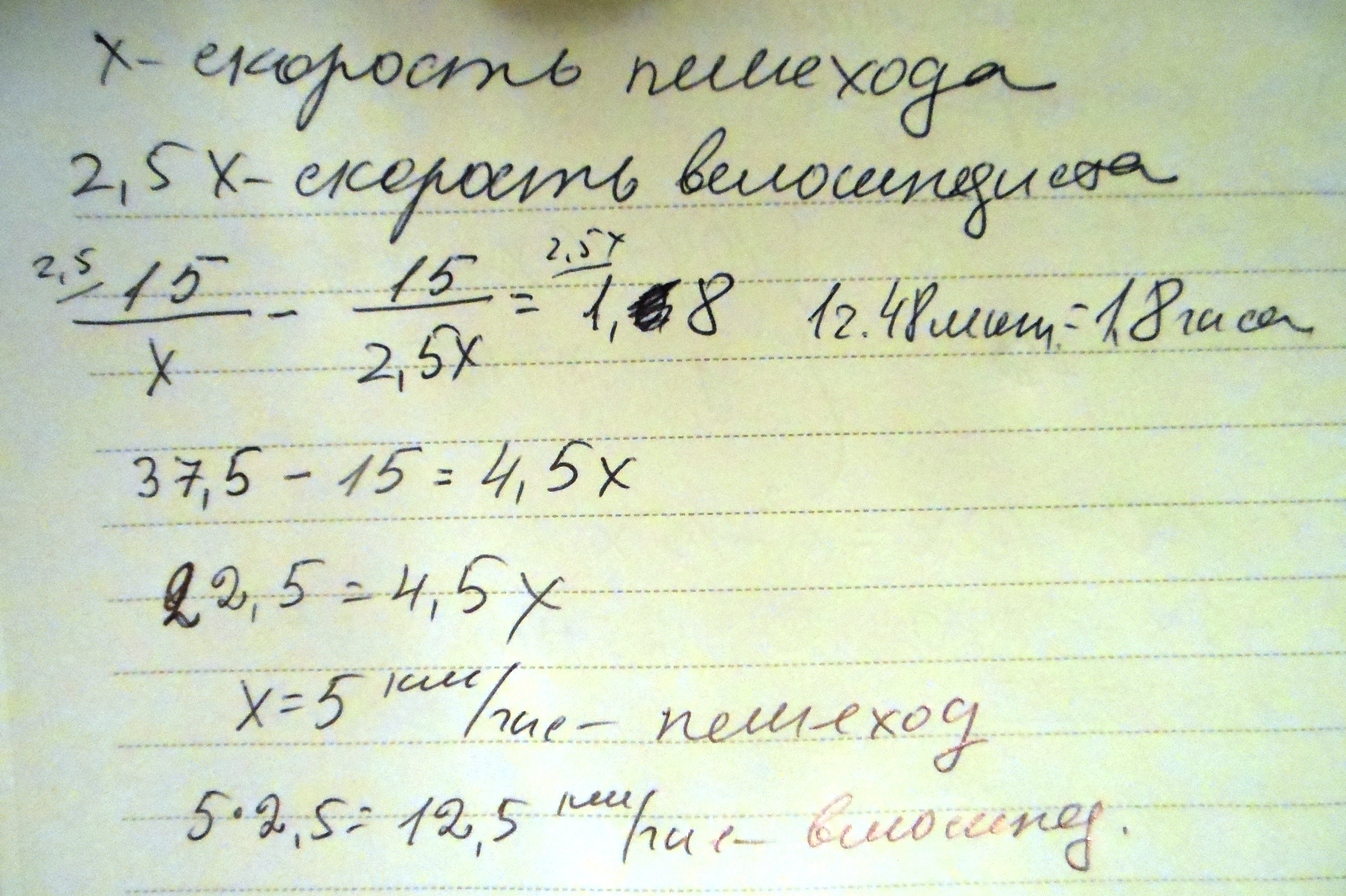 x - скорость пешехода
2,5x - скорость велосипедиста
2,5/ 15/x - 15/2,5x = 2,5x/ 1,8 1г.48мин. = 1,8 часа
37,5 - 15 = 4,5x
22,5 = 4,5x
x = 5 км/час - пешеход
5·2,5 = 12,5 км/час - велосипед.